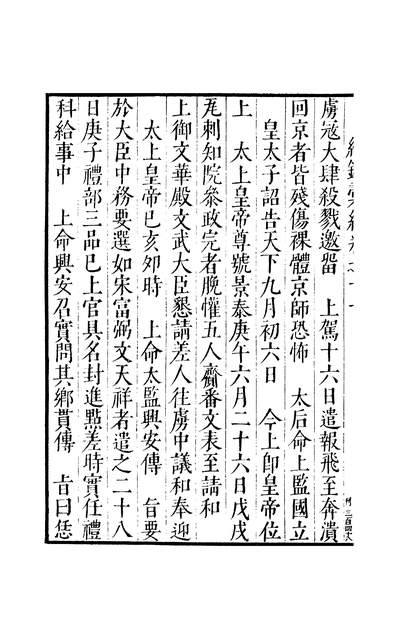 虜寇大肆殺戮邀留　上駕十六日遣報飛至奔潰
回京者皆殘傷裸體京師恐怖　太后命上監國立
皇太子詔告天下九月初六日　今上卽皇帝位
上　太上皇帝尊號景泰庚午六月二十六日戊戌
丞刺知院叅政完者脫懽五人齎番文表至請和
上御文華殿文武大臣懇請差人往虜中議和奉迎
太上皇帝已亥夘時　上命太監興安傳　旨要
於大臣中務要選如宋富弼文天祥者遣之二十八
日庚子禮部三品已上官具名封進點差時實任禮
科給事中　上命興安召實問其鄉貫傳　旨曰恁